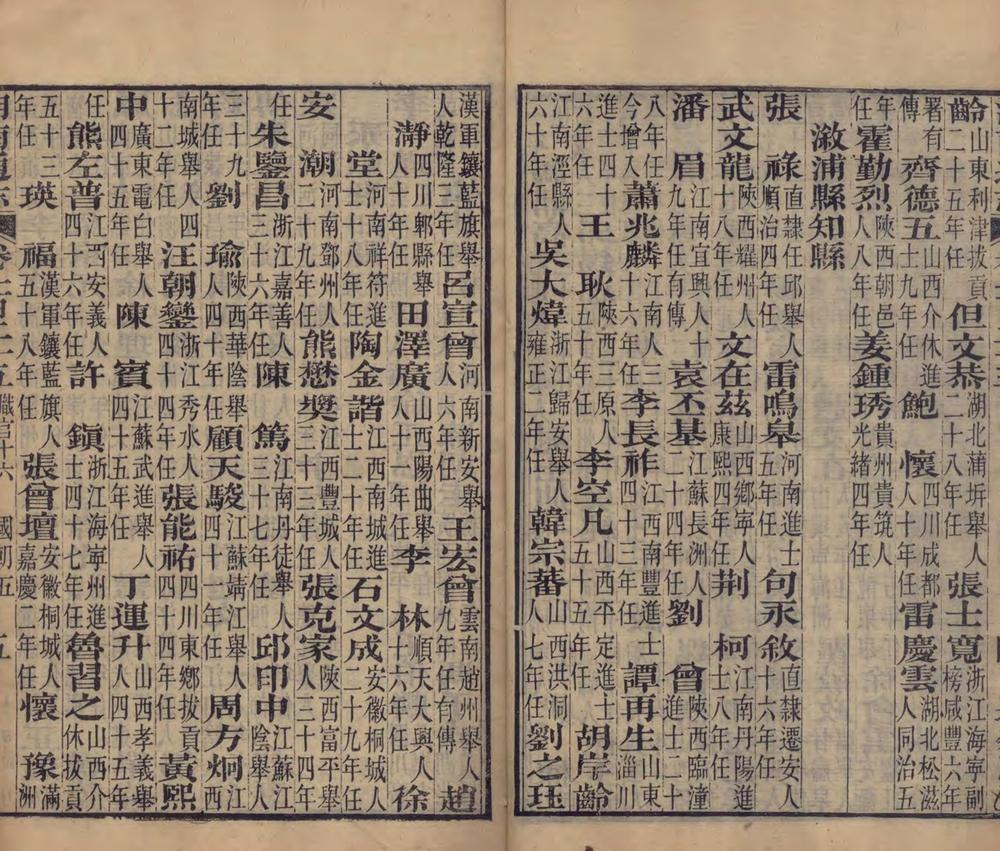 齡山東利津拔貢二十五年任 但文恭湖北蒲圻舉人二十八年任 張士寬浙江海寧副榜咸豐六年
署有傳 齊德五山西介休進士九年任 鮑懷四川成都人十年任 雷慶雲湖北松滋人同治五
年任 霍勤烈陝西朝邑人八年任 姜鍾琇貴州貴筑人光緒四年任
漵浦縣知縣
張祿直隸任邱舉人順治四年任 雷鳴皋河南進士五年任 句永敘直隸遷安人十六年任
武文龍陝西耀州人十八年任 文在茲山西鄉寧人康熙四年任 荆柯江南丹陽進士八年任
潘眉江南宜興人十九年任有傳 袁丕基江蘇長洲人二十四年任 劉曾陝西臨潼進士二十
八年任今增入 蕭兆麟江南人三十六年任 李長祚江西南豐進士四十三年任 譚再生山東淄川
進士四十六年任 王耿陝西三原人五十年任 李空凡山西平定進士五十五年任 胡岸齡
江南涇縣人六十年任 吳大煒浙江歸安舉人雍正二年任 韓宗蕃山西洪洞人七年任 劉之珏
漢軍鑲藍旗舉人乾隆三年任 呂宣曾河南新安舉人六年任 王宏曾雲南趙州舉人九年任有傳 趙
靜四川郫縣舉人十年任 田澤廣山西陽曲舉人十一年任 李林順天大興人十六年任 徐
堂河南祥符進士十八年任 陶金諧江西南城進士二十年任 石文成安徽桐城人二十九年任
安潮河南鄧州人二十九年任 熊懋奬江西豐城人三十三年任 張克家陝西富平舉人三十四年
任 朱鑒昌浙江嘉善人三十六年任 陳篤江南丹徒舉人三十七年任 邱印中江蘇江陰舉人
三十九年任 劉瑜陝西華陰舉人四十年任 顧天駿江蘇靖江舉人四十一年任 周方炯江西
南城舉人四十二年任 汪朝鑾浙江秀水人四十四年任 張能祐四川東鄉拔貢四十四年任 黃熙
中廣東電白舉人四十五年任 陳賓江蘇武進舉人四十五年任 丁運升山西孝義舉人四十五年
任 熊左普江西安義人四十六年任 許鎮浙江海寧州進士四十七年任 魯習之山西介休拔貢
五十三年任 瑛福漢軍鑲藍旗人五十八年任 張曾壇安徽桐城人嘉慶二年任 懷豫滿洲
職官十六 國朝五 五